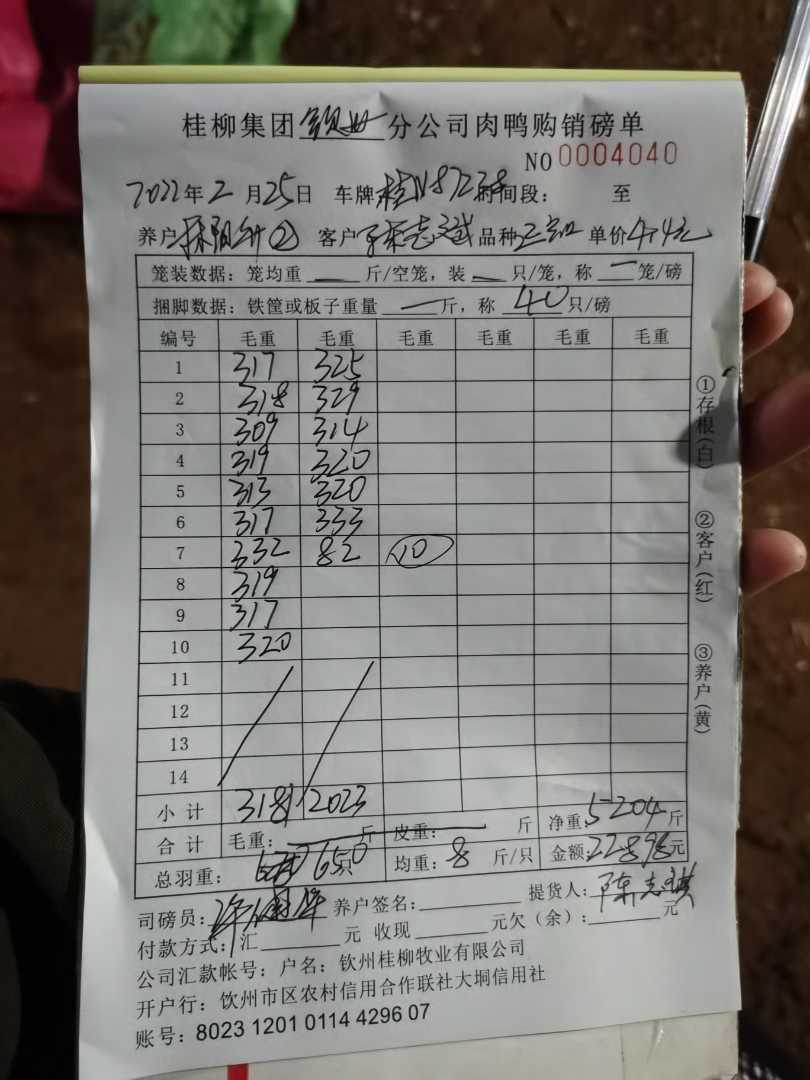 桂柳集团钦州分公司肉鸭购销磅单
NO 0004040
2022年2月25日 车牌 桂N 时间段： 至
养户 ② 客户 品种 单价4.4元
笼装数据：笼均重 — 斤/空笼，装 — 只/笼，称 — 笼/磅
捆脚数据：铁筐或板子重量 — 斤，称 40 只/磅
编号 毛重 毛重 毛重 毛重 毛重 毛重
1 317 325
2 318 329
3 309 314
4 319 320
5 313 320
6 317 333
7 332 82 10
8 319
9 317
10 320
11
12
13
14
小计 3181 2023
合计 毛重： 斤 皮重： 斤 净重：5204斤
总羽重： 650只 均重：8 斤/只 金额：22898元
司磅员： 养户签名： 提货人：陈志祺
付款方式：汇 元 收现 元欠（余）： 元
公司汇款帐号：户名：钦州桂柳牧业有限公司
开户行：饮州市区农村信用合作联社大垌信用社
账号：8023 1201 0114 4296 07
①存根(白) ②客户(红) ③养户(黄)